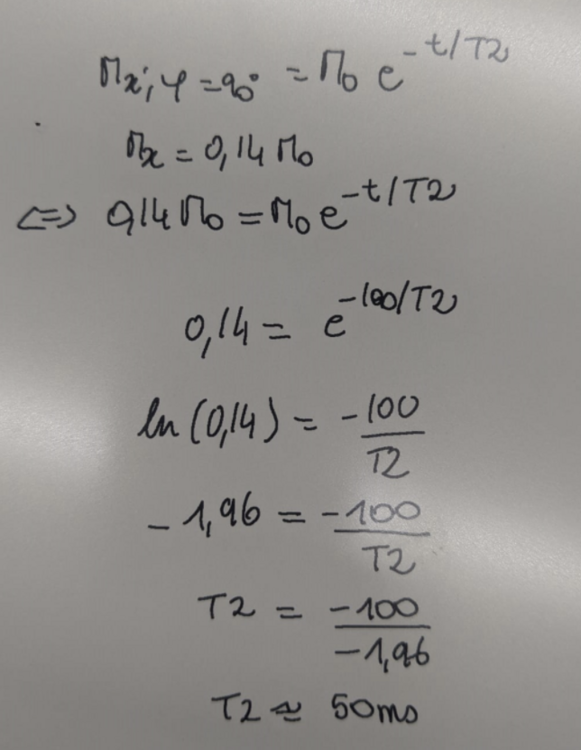 Mx', φ=90° = M0 e^-t/T2
Mx = 0,14 M0
<=> 0,14 M0 = M0 e^-t/T2
0,14 = e^-100/T2
ln(0,14) = -100/T2
-1,96 = -100/T2
T2 = -100/-1,96
T2 ≈ 50ms